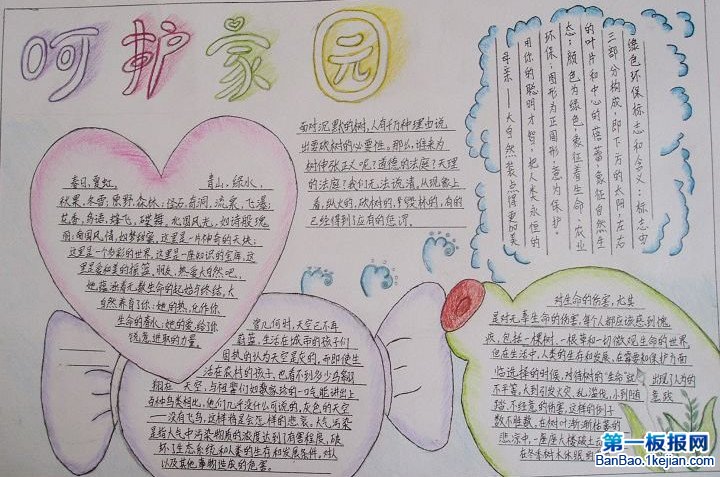 呵护家园
春日,夏虹,
青山,绿水,
秋果,冬雪,原野,森林;怪石,奇洞,流泉,飞瀑;
花香,鸟语,蜂飞,蝶舞。北国风光,如诗般瑰
丽;南国风情,如梦甜蜜,这里是一片神奇的天地;
这里是一个多彩的世界,这里是一座知识的宝库,这
里是爱和美的摇篮。朋友,热爱大自然吧,
她蕴涵着礼敬生命的起始与终结,大
自然养育了你;她的热,化作你
生命的春秋;她的爱,给了你
锐意进取的力量。
面对沉默的树,人有千万种理由说
出要砍树的必要性。那么,谁来为
树伸张正义呢?道德的法庭?天理
的法庭?我们无法说清,从现象上
看,纵火的,砍树的,毁林的,有的
已经得到了应有的惩罚。
绿色环保标志和含义:标志由
三部分构成,即下方的太阳,左右
的叶片和中心的蓓蕾,象征自然生
态;颜色为绿色,象征着生命,农业
环保;图形为正圆形,意为保护。
用你的聪明才智,把人类永恒的
母亲——大自然装点得更加美
曾几何时,天空已不再
蔚蓝,生活在城市的孩子们
固执的认为天空是灰的,而即使生
活在农村的孩子,也看不到多少鸟家翱
翔在天空,与祖辈们如数家珍的一口气能讲出上
百种鸟类相比,他们几乎没什么可说的,灰色的天空
——没有飞鸟,这样将是会怎样的悲哀。大气污染
是指大气中污染物质的浓度达到了有害程度,破
坏了生态系统和人类的生存和发展条件,对人
以及其他事物造成的危害。
对生命的伤害,尤其
是对无辜生命的伤害,每个人都应该感到愧
疚,包括一棵树,一根草和一切微观生命的世界,
但在生活中,人类的生存和发展,在需要和保护方面
临选择的时候,对待树的"生命"就出现了人为的
不平等,大到引发火灾,乱滥伐,小到随意践
踏,不经意的伤害,这样的例子
数不胜数,在树木渐渐枯萎的
悲凉中,一座座大楼破土
在冬季树木休眠的
第一板报网
BanBao.1kejian.com